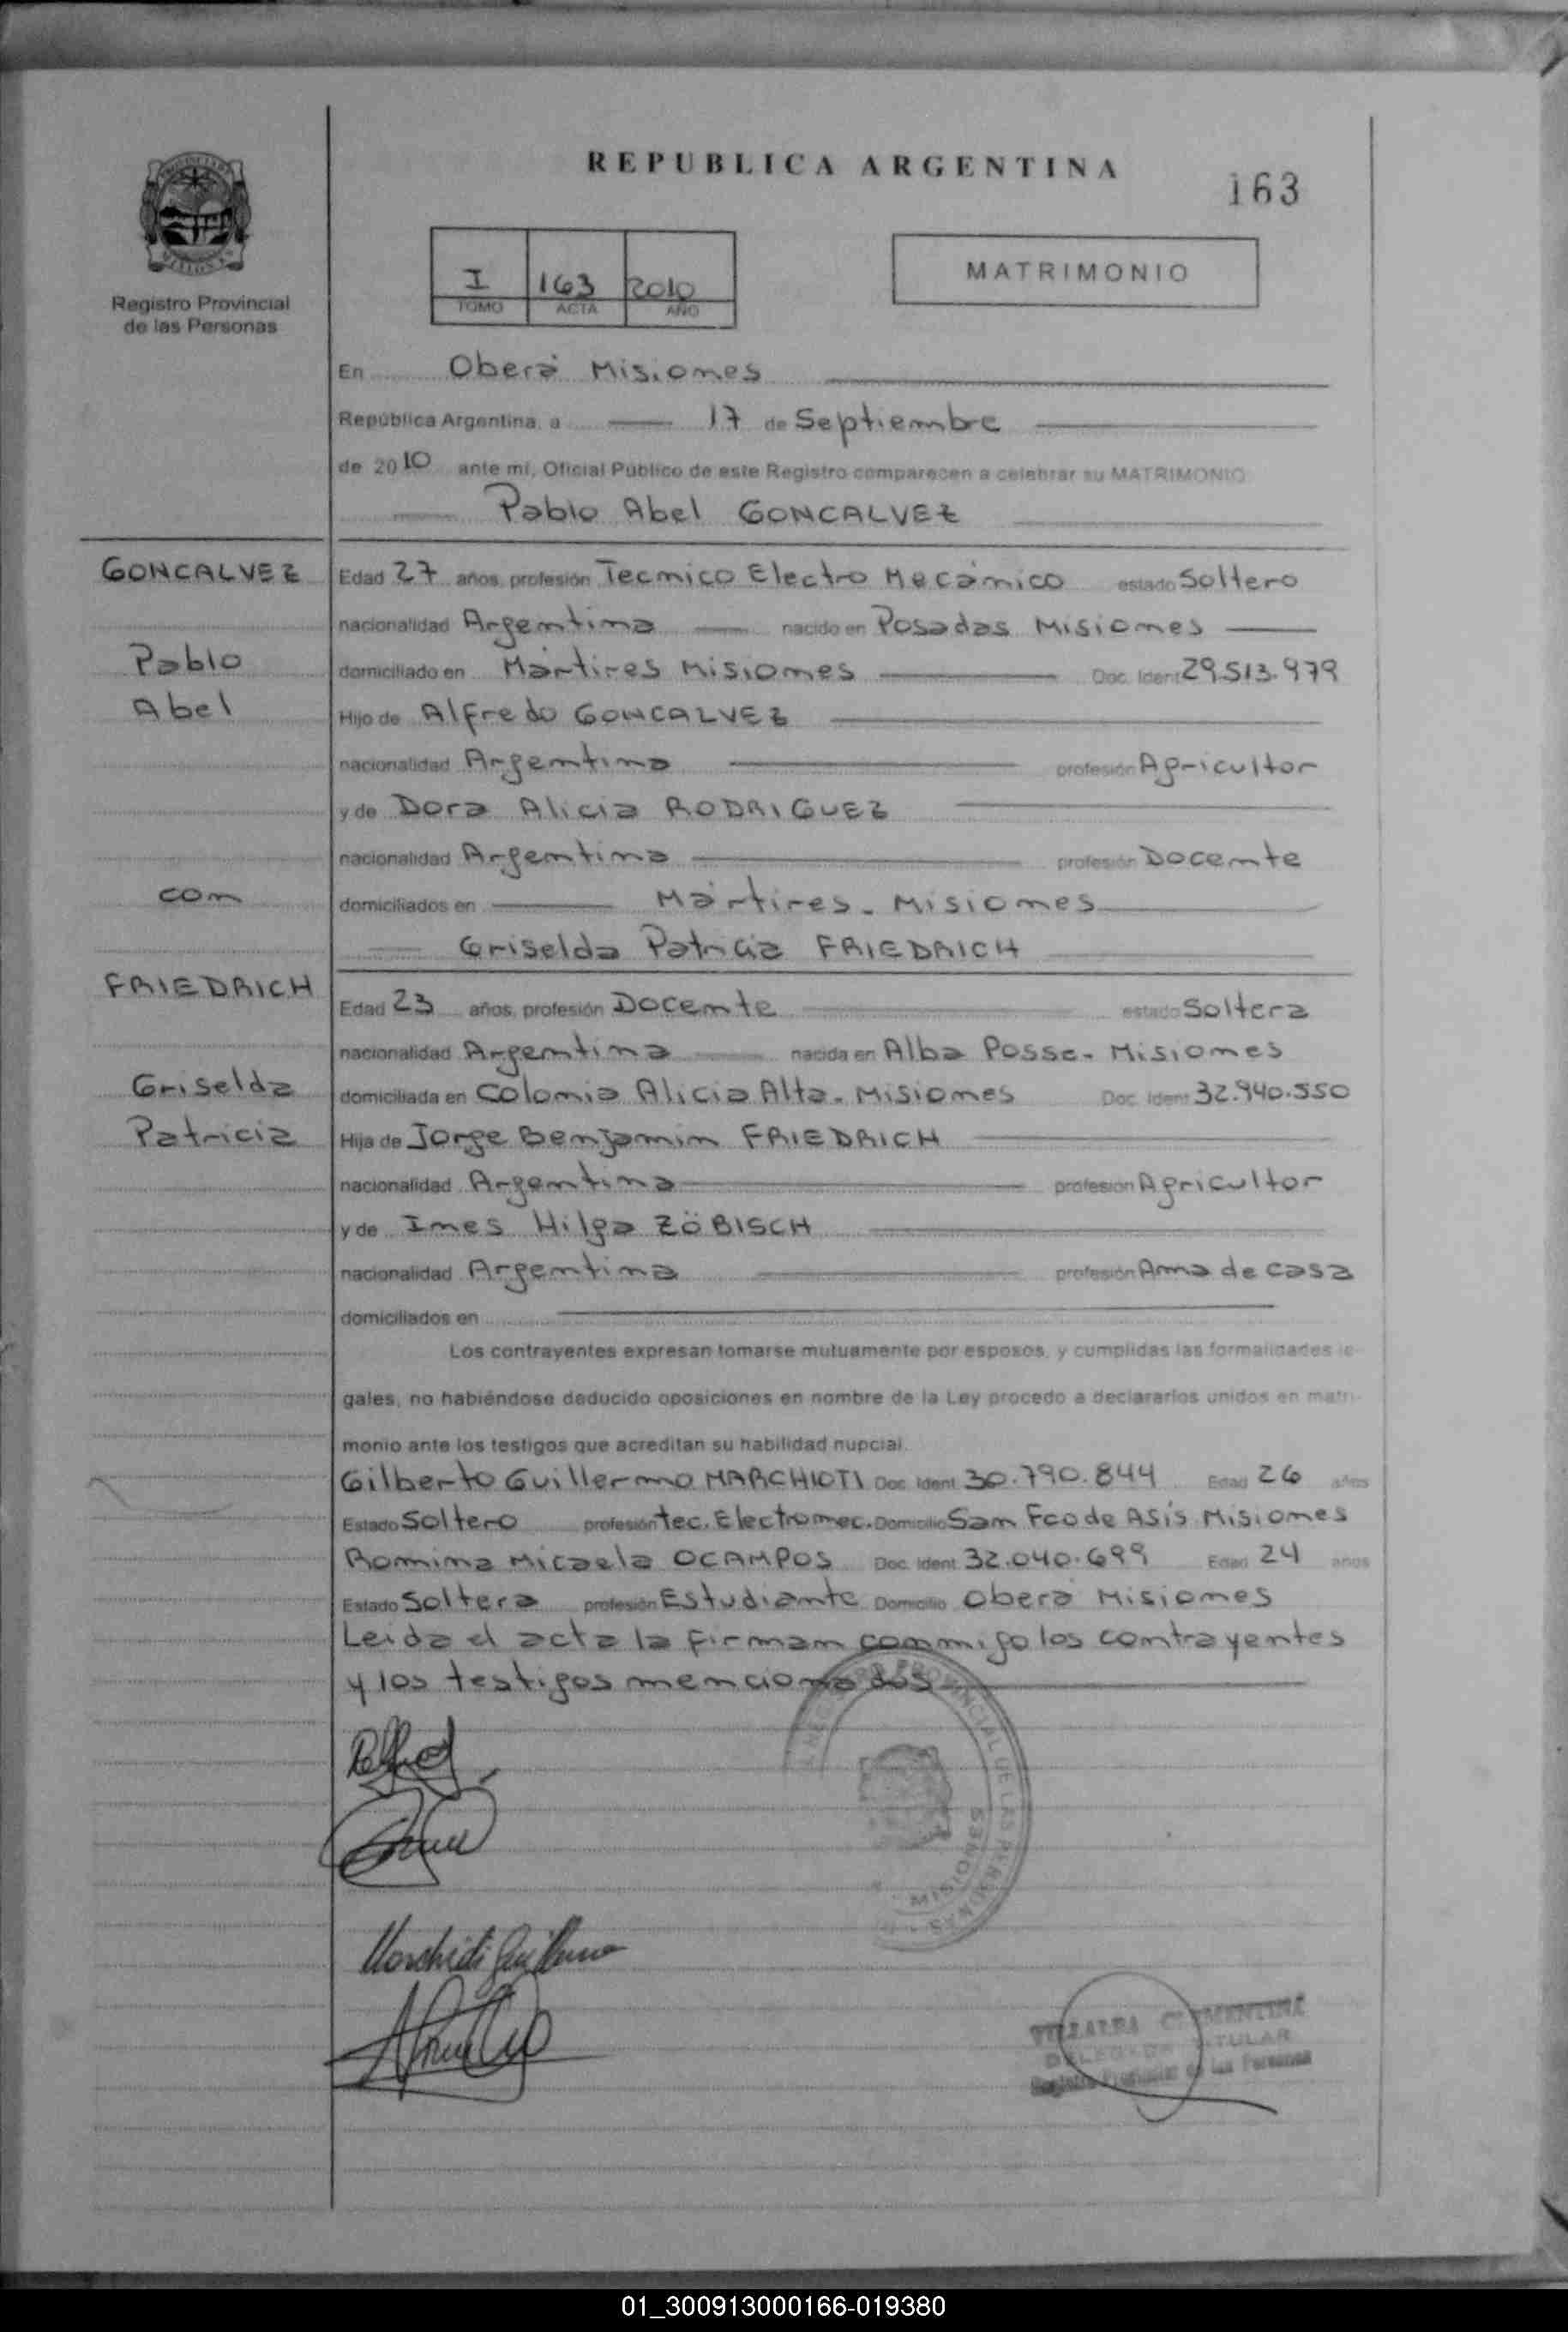 REPUBLICA ARGENTINA
163
Registro Provincial
de las Personas
I 163 2010
TOMO ACTA AÑO
MATRIMONIO
En Oberá Misiones
República Argentina, a 17 de Septiembre
de 2010 ante mí, Oficial Público de este Registro comparecen a celebrar su MATRIMONIO
Pablo Abel GONCALVEZ
GONCALVEZ
Pablo
Abel
con
FRIEDRICH
Griselda
Patricia
Edad 27 años, profesión Tecnico Electro Mecánico estado Soltero
nacionalidad Argentina nacido en Posadas Misiones
domiciliado en Mártires Misiones Doc. Ident 29.513.979
Hijo de Alfredo GONCALVEZ
nacionalidad Argentina profesión Agricultor
y de Dora Alicia RODRIGUEZ
nacionalidad Argentina profesión Docente
domiciliados en Mártires - Misiones
Griselda Patricia FRIEDRICH
Edad 23 años, profesión Docente estado Soltera
nacionalidad Argentina nacida en Alba Posse - Misiones
domiciliada en Colonia Alicia Alta - Misiones Doc. Ident 32.940.550
Hija de Jorge Benjamin FRIEDRICH
nacionalidad Argentina profesión Agricultor
y de Ines Hilga ZÖBISCH
nacionalidad Argentina profesión Ama de casa
domiciliados en
Los contrayentes expresan tomarse mutuamente por esposos, y cumplidas las formalidades le-
gales, no habiéndose deducido oposiciones en nombre de la Ley procedo a declararlos unidos en matri-
monio ante los testigos que acreditan su habilidad nupcial.
Gilberto Guillermo MARCHIOTI Doc. Ident 30.790.844 Edad 26 años
Estado Soltero profesión tec. Electromec. Domicilio San Fco de Asís Misiones
Romina Micaela OCAMPOS Doc. Ident 32.040.699 Edad 24 años
Estado Soltera profesión Estudiante Domicilio Oberá Misiones
Leida el acta la firman conmigo los contrayentes
y los testigos mencionados
REGISTRO PROVINCIAL DE LAS PERSONAS
MISIONES
VILLALBA CLEMENTINA
DELEGADA TITULAR
Registro Provincial de las Personas
01_300913000166-019380